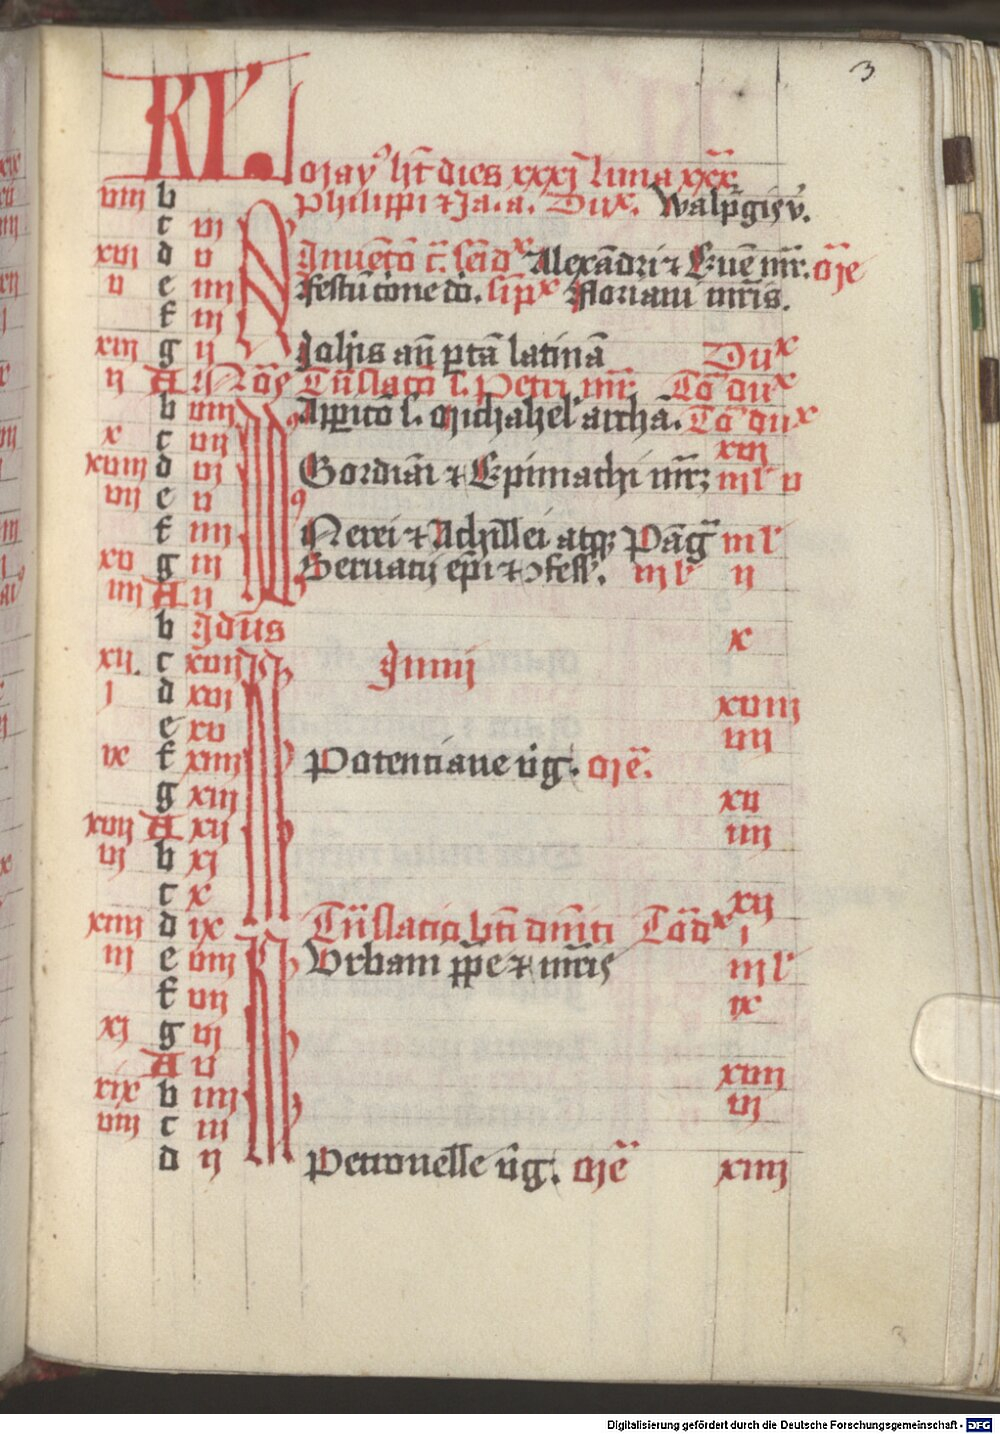 3
KL Mayꝰ hꝫ dies xxxj luna xxx
viij b Philippi ⁊ Ja.a. Duˣ. Walpgis v̄.
c vj
xvj d v Inuētō c̄. Alexādri ⁊ Euē mr̄. om̄e
v e iiij Festū corone dō. sīpˣ Floriani mr̄is.
f iij
xiij g ij Joh̄is an̄ portā latinā Duˣ
ij A Nōe Trāslatō s. Petri mr̄ Tō duˣ
b viij Apparitō s. Michahel' archa. Tō duˣ
x c vij xiij
xviij d vj Gordiāi ⁊ Epimachi mr̄ꝫ ml' v
vij e v
f iiij Nerei ⁊ Achillei atqꝫ Pāg̃ ml'
xv g iij Seruatij ep̄i ⁊ ↄfess'. ml' ij
iiij A ij
b Idus x
xij. c xvij Junij
j d xvj xviij
e xv iiij
ix f xiiij Potenciane v̄g'. om̄e.
g xiij xv
xvij A xij iiij
vj b xj
c x xij
xiiij d ix Trāslacio bt̄i dn̄ici Tō dˣ i
iij e viij Vrbani pp̄e ⁊ mr̄is ml'
f vij ix
xj g vj
A v xvij
xix b iiij vj
viij c iij
d ij Petronelle v̄g'. om̄e xiiij
3
Digitalisierung gefördert durch die Deutsche Forschungsgemeinschaft - DFG